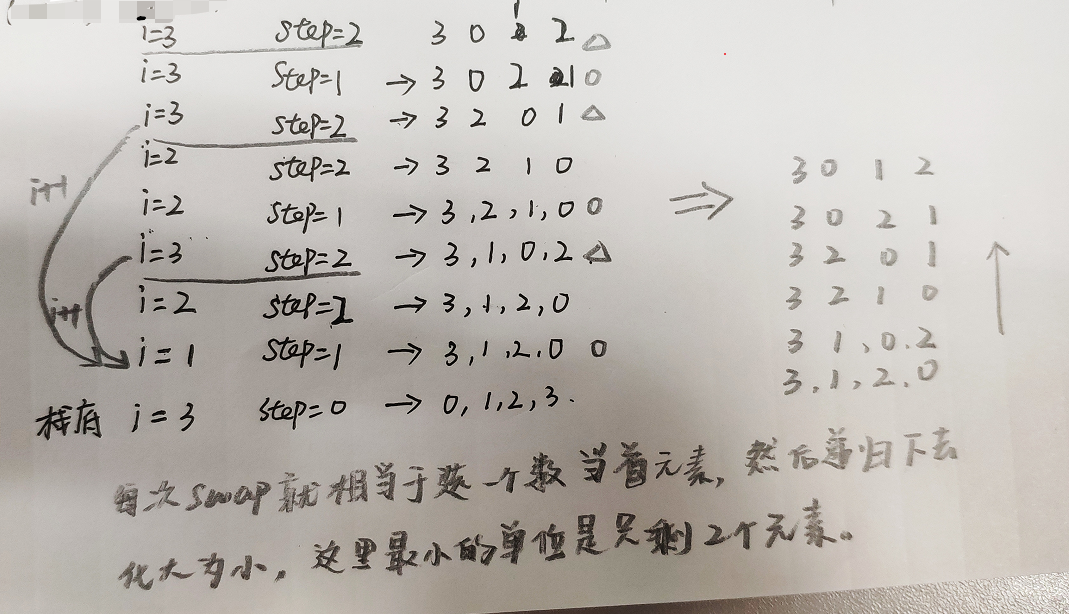 i=3 step=2 3 0 1 2 △
i=3 step=1 → 3 0 2 1 0
i=3 step=2 → 3 2 0 1 △
i=2 step=2 → 3 2 1 0
i=2 step=1 → 3,2,1,0 0
i=3 step=2 → 3,1,0,2 △
i=2 step=2 → 3,1,2,0
i=1 step=1 → 3,1,2,0 0
栈底 i=3 step=0 → 0,1,2,3.
i++
i++
⇒
3 0 1 2
3 0 2 1
3 2 0 1
3 2 1 0
3 1,0.2
3,1,2,0
每次swap就相当于换一个数当首元素,然后递归下去
化大为小,这里最小的单位是只剩2个元素。